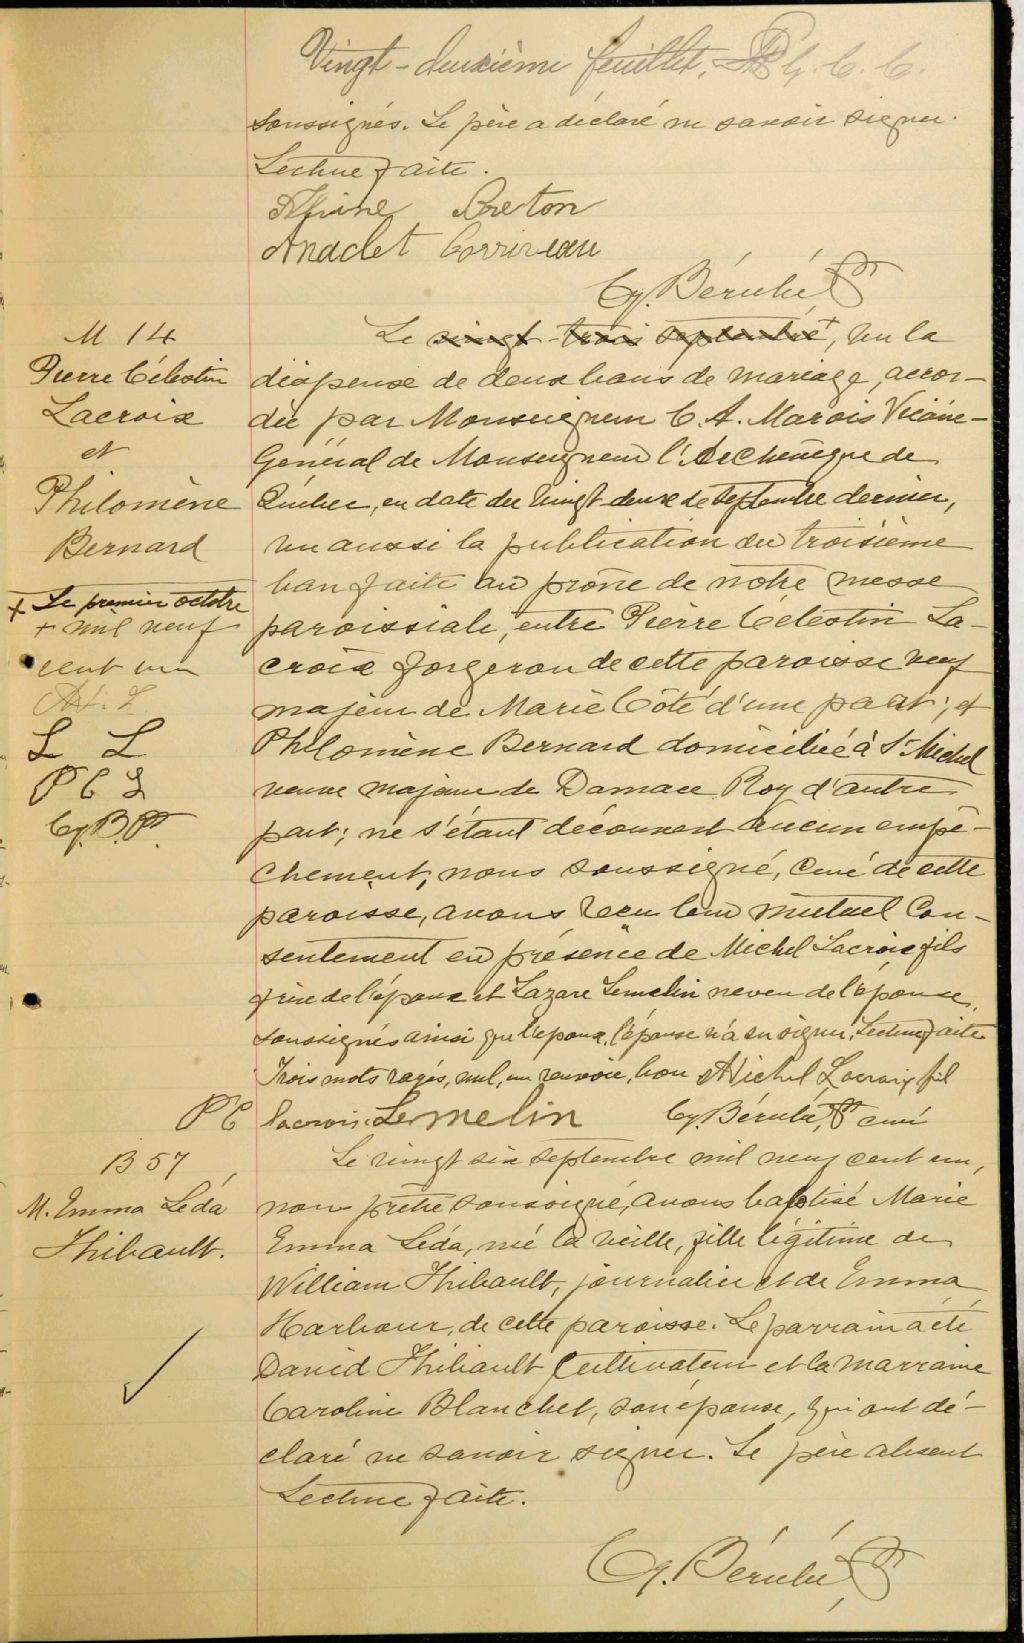 Vingt-deuxième feuillet. G. C. C.
soussignés. Le père a déclaré ne savoir signer.
Lecture faite.
Breton
Anaclet Corriveau
Cy. Bérubé, Ptre
M 14
Pierre Célestin
Lacroix
et
Philomène
Bernard
+ Le premier octobre
+ mil neuf
cent un
L L
P C L
Cy. B. Ptre
Le vingt-trois septembre +, vu la
dispense de deux bans de mariage, accor-
dée par Monseigneur C. A. Marois Vicaire-
Général de Monseigneur l'Archevêque de
Québec, en date du vingt deux de septembre dernier,
vu aussi la publication du troisième
ban faite au prône de notre messe
paroissiale, entre Pierre Célestin La-
croix forgeron de cette paroisse veuf
majeur de Marie Côté d'une part; et
Philomène Bernard domiciliée à St Michel
veuve majeure de Damase Roy d'autre
part; ne s'étant découvert aucun empê-
chement, nous soussigné, Curé de cette
paroisse, avons reçu leur mutuel Con-
sentement en présence de Michel Lacroix fils
frère de l'époux et Lazare Lemelin neveu de l'épouse,
soussignés ainsi que l'époux, l'épouse n'a su signer. Lecture faite
Trois mots rayés, nul, un renvoi, bon Michel Lacroix fils
P C Lacroix Lemelin Cy. Bérubé, Ptre curé
B 57
M. Emma Léda
Thibault.
Le vingt six septembre mil neuf cent un,
nous prêtre soussigné, avons baptisé Marie
Emma Léda, née la veille, fille légitime de
William Thibault, journalier et de Emma
Harbour, de cette paroisse. Le parrain a été
David Thibault Cultivateur et la marraine
Caroline Blanchet, son épouse, qui ont dé-
claré ne savoir signer. Le père absent
Lecture faite.
Cy. Bérubé, Ptre